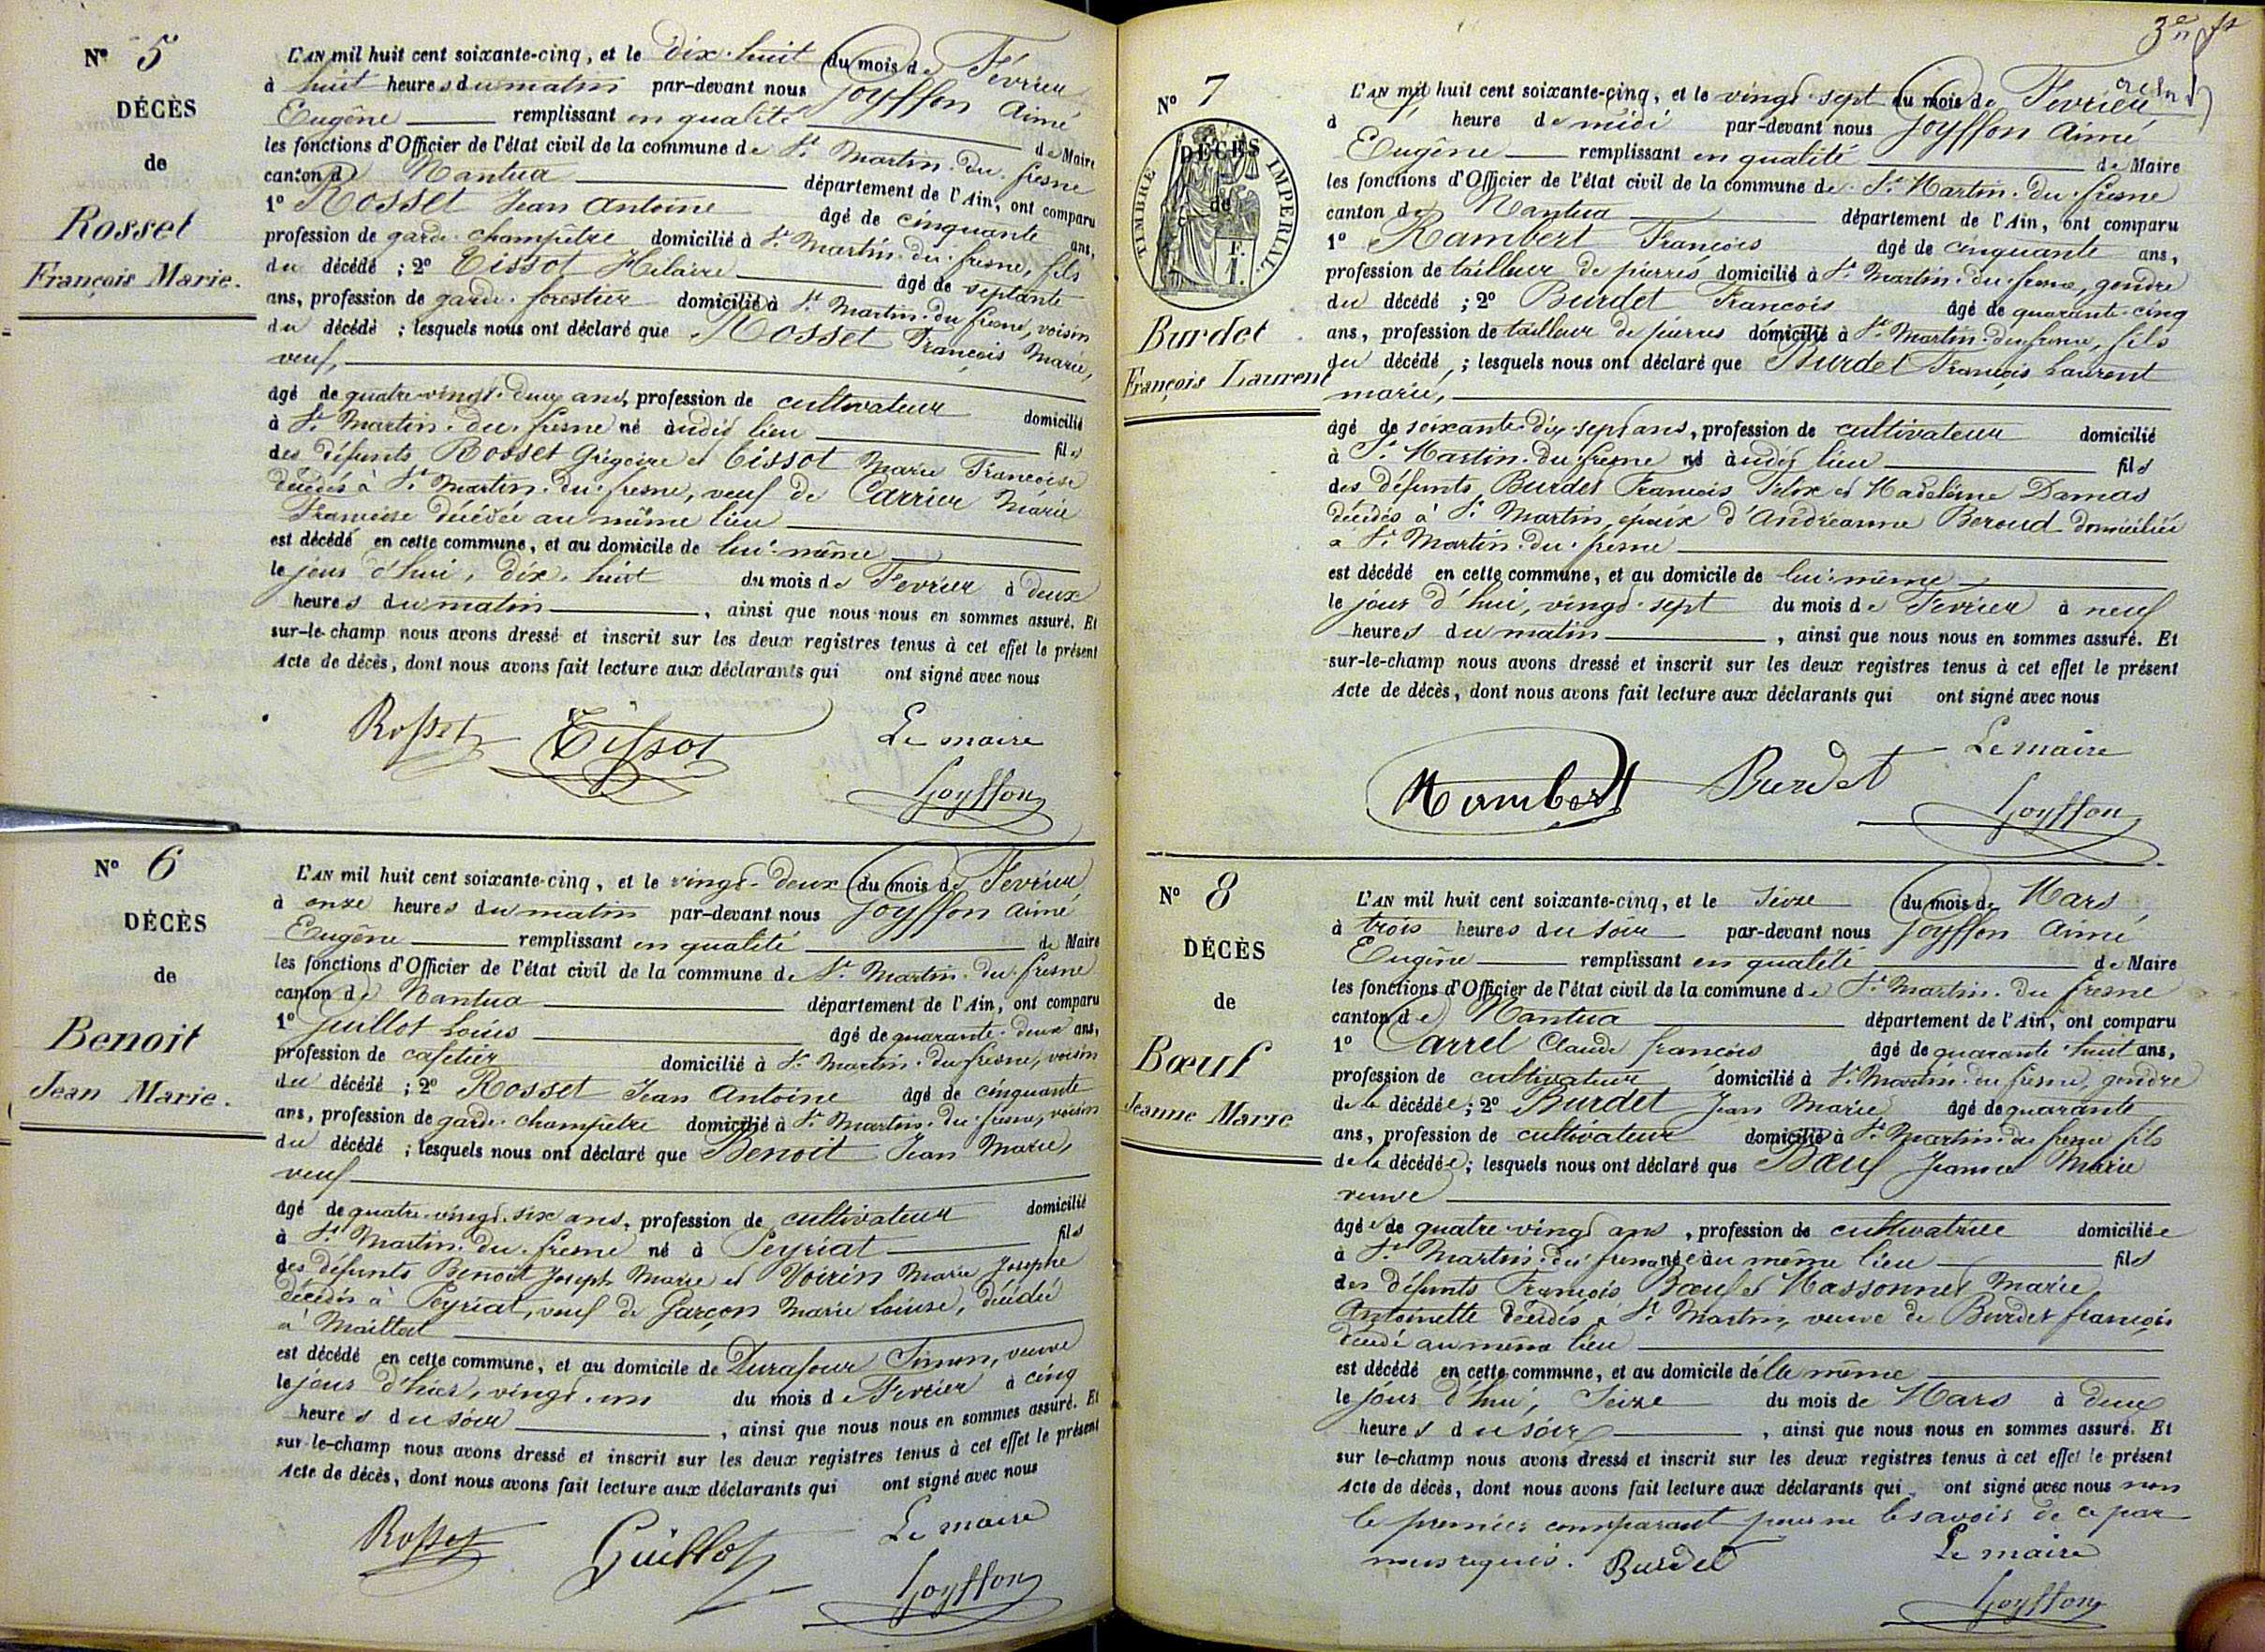 Nº 5
DÉCÈS
de
Rosset
François Marie.
L'AN mil huit cent soixante-cinq, et le dix-huit du mois de Février
à huit heures du matin par-devant nous Goyffon Aimé
Eugène remplissant en qualité de Maire
les fonctions d'Officier de l'état civil de la commune de St Martin-du-fresne
canton de Nantua département de l'Ain, ont comparu
1º Rosset Jean Antoine âgé de cinquante ans,
profession de garde-champêtre domicilié à St Martin-du-fresne, fils
du décédé ; 2º Tissot Hilaire âgé de septante
ans, profession de garde-forestier domicilié à St Martin-du-fresne, voisin
du décédé ; lesquels nous ont déclaré que Rosset François Marie,
veuf,
âgé de quatre-vingt-deux ans, profession de cultivateur domicilié
à St Martin-du-fresne né audit lieu fils
des défunts Rosset Grégoire et Tissot Marie Françoise
décédés à St Martin-du-fresne, veuf de Carrier Marie
Françoise décédée au même lieu
est décédé en cette commune, et au domicile de lui-même
le jour d'hui, dix-huit du mois de Février à deux
heures du matin, ainsi que nous nous en sommes assuré. Et
sur-le-champ nous avons dressé et inscrit sur les deux registres tenus à cet effet le présent
Acte de décès, dont nous avons fait lecture aux déclarants qui ont signé avec nous
Rosset Tissot Le maire
Goyffon
Nº 6
DÉCÈS
de
Benoit
Jean Marie.
L'AN mil huit cent soixante-cinq, et le vingt-deux du mois de Février
à onze heures du matin par-devant nous Goyffon Aimé
Eugène remplissant en qualité de Maire
les fonctions d'Officier de l'état civil de la commune de St Martin-du-fresne
canton de Nantua département de l'Ain, ont comparu
1º Guillot Louis âgé de quarante-deux ans,
profession de cafetier domicilié à St Martin-du-fresne, voisin
du décédé ; 2º Rosset Jean Antoine âgé de cinquante
ans, profession de garde-champêtre domicilié à St Martin-du-fresne, voisin
du décédé ; lesquels nous ont déclaré que Benoit Jean Marie,
veuf
âgé de quatre-vingt-six ans, profession de cultivateur domicilié
à St Martin-du-fresne né à Peyriat fils
des défunts Benoit Joseph Marie et Voirin Marie Josephe
décédés à Peyriat, veuf de Garçon Marie Louise, décédé
à Maillat
est décédé en cette commune, et au domicile de Durafour Simon, veuve
le jour d'hier, vingt-un du mois de Février à cinq
heures du soir, ainsi que nous nous en sommes assuré. Et
sur-le-champ nous avons dressé et inscrit sur les deux registres tenus à cet effet le présent
Acte de décès, dont nous avons fait lecture aux déclarants qui ont signé avec nous
Rosset Guillot Le maire
Goyffon
3e
Nº 7
TIMBRE IMPERIAL.
F.
1.
DÉCÈS
de
Burdet
François Laurent
L'AN mil huit cent soixante-cinq, et le vingt-sept du mois de Février
à 1 heure de midi par-devant nous Goyffon Aimé
Eugène remplissant en qualité de Maire
les fonctions d'Officier de l'état civil de la commune de St Martin-du-fresne
canton de Nantua département de l'Ain, ont comparu
1º Rambert François âgé de cinquante ans,
profession de tailleur de pierres domicilié à St Martin-du-fresne, gendre
du décédé ; 2º Burdet François âgé de quarante-cinq
ans, profession de tailleur de pierres domicilié à St Martin-du-fresne, fils
du décédé ; lesquels nous ont déclaré que Burdet François Laurent
marié,
âgé de soixante-dix-sept ans, profession de cultivateur domicilié
à St Martin-du-fresne né audit lieu fils
des défunts Burdet François Felix et Madeleine Damas
décédés à St Martin, époux d'Andréanne Beroud domiciliée
à St Martin-du-fresne
est décédé en cette commune, et au domicile de lui-même
le jour d'hui, vingt-sept du mois de Février à neuf
heures du matin, ainsi que nous nous en sommes assuré. Et
sur-le-champ nous avons dressé et inscrit sur les deux registres tenus à cet effet le présent
Acte de décès, dont nous avons fait lecture aux déclarants qui ont signé avec nous
Rambert Burdet Le maire
Goyffon
Nº 8
DÉCÈS
de
Bœuf
Jeanne Marie
L'AN mil huit cent soixante-cinq, et le Seize du mois de Mars
à trois heures du soir par-devant nous Goyffon Aimé
Eugène remplissant en qualité de Maire
les fonctions d'Officier de l'état civil de la commune de St Martin-du fresne
canton de Nantua département de l'Ain, ont comparu
1º Carrel Claude françois âgé de quarante-huit ans,
profession de cultivateur domicilié à St Martin-du fresne, gendre
de la décédée ; 2º Burdet Jean Marie âgé de quarante
ans, profession de cultivateur domicilié à St Martin-du fresne fils
de la décédée ; lesquels nous ont déclaré que Bœuf Jeanne Marie
veuve
âgée de quatre-vingt ans, profession de cultivatrice domiciliée
à St Martin-du fresne née au même lieu fils
des défunts François Bœuf et Massonnet Marie
Antoinette décédés à St Martin, veuve de Burdet françois
décédé au même lieu
est décédé en cette commune, et au domicile d'elle même
le jour d'hui, Seize du mois de Mars à deux
heures du soir, ainsi que nous nous en sommes assuré. Et
sur le-champ nous avons dressé et inscrit sur les deux registres tenus à cet effet le présent
Acte de décès, dont nous avons fait lecture aux déclarants qui ont signé avec nous non
le premier comparant pour ne le savoir de ce par
nous requis. Burdet Le maire
Goyffon